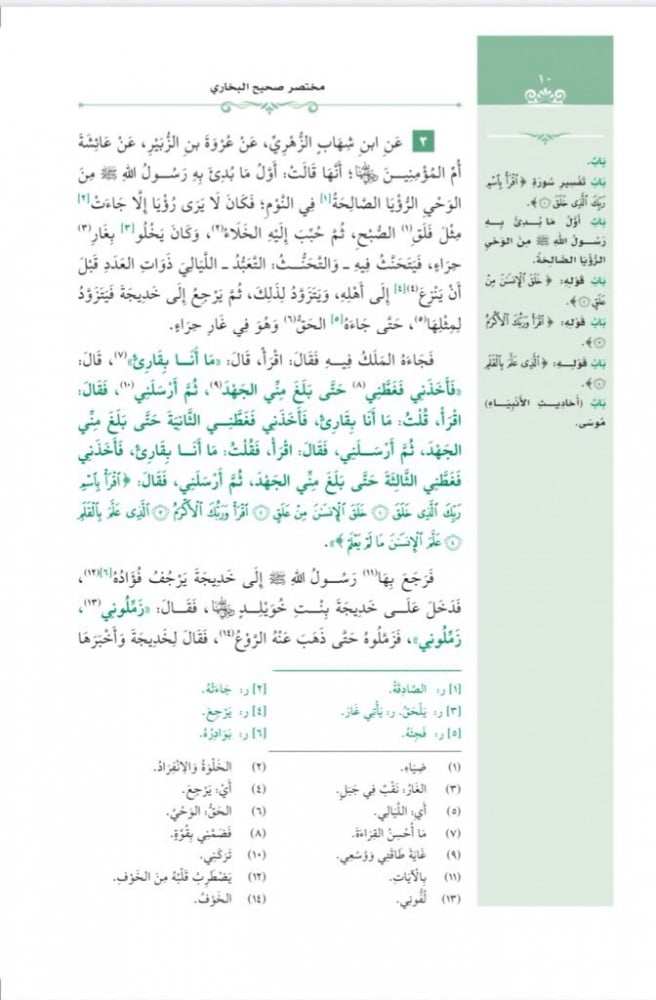 مختصر صحيح البخاري
١٠
٣ عَنِ ابنِ شِهَابٍ الزُّهْرِيِّ، عَنْ عُرْوَةَ بنِ الزُّبَيْرِ، عَنْ عَائِشَةَ
أُمِّ المُؤْمِنِيـنَ ﷺ؛ أَنَّهَا قَالَتْ: أَوَّلُ مَا بُدِئَ بِهِ رَسُـولُ اللهِ ﷺ مِنَ
الوَحْيِ الرُّؤْيَا الصَّالِحَةُ[١] فِي النَّوْمِ؛ فَكَانَ لَا يَرَى رُؤْيَا إِلَّا جَاءَتْ[٢]
مِثْلَ فَلَقِ(١) الصُّبْحِ، ثُمَّ حُبِّبَ إِلَيْهِ الخَلَاءُ(٢)، وَكَانَ يَخْلُو[٣] بِغَارِ(٣)
حِرَاءٍ، فَيَتَحَنَّثُ فِيهِ ـ وَالتَّحَنُّـثُ: التَّعَبُّـدُ ـ اللَّيَالِيَ ذَوَاتِ العَدَدِ قَبْلَ
أَنْ يَنْزِعَ(٤)[٤] إِلَى أَهْلِهِ، وَيَتَزَوَّدُ لِذَلِكَ، ثُمَّ يَرْجِعُ إِلَى خَدِيجَةَ فَيَتَزَوَّدُ
لِمِثْلِهَا(٥)، حَتَّى جَاءَهُ[٥] الحَقُّ(٦) وَهُوَ فِي غَارِ حِرَاءٍ.
فَجَاءَهُ المَلَكُ فِيـهِ فَقَالَ: اقْرَأْ، قَالَ: «مَا أَنَـا بِقَارِئٍ»(٧)، قَالَ:
«فَأَخَذَنِي فَغَطَّنِي(٨) حَتَّى بَلَغَ مِنِّي الجَهْدَ(٩)، ثُمَّ أَرْسَلَنِي(١٠)، فَقَالَ:
اقْرَأْ، قُلْتُ: مَا أَنَا بِقَارِئٍ، فَأَخَذَنِي فَغَطَّنِـي الثَّانِيَةَ حَتَّى بَلَغَ مِنِّي
الجَهْدَ، ثُمَّ أَرْسَـلَنِي، فَقَالَ: اقْرَأْ، فَقُلْتُ: مَا أَنَـا بِقَارِئٍ، فَأَخَذَنِي
فَغَطَّنِي الثَّالِثَةَ حَتَّى بَلَغَ مِنِّي الجَهْدَ، ثُمَّ أَرْسَلَنِي، فَقَالَ: ﴿ٱقْرَأْ بِٱسْمِ
رَبِّكَ ٱلَّذِى خَلَقَ ۝١ خَلَقَ ٱلْإِنسَـٰنَ مِنْ عَلَقٍ ۝٢ ٱقْرَأْ وَرَبُّكَ ٱلْأَكْرَمُ ۝٣ ٱلَّذِى عَلَّمَ بِٱلْقَلَمِ
۝٤ عَلَّمَ ٱلْإِنسَـٰنَ مَا لَمْ يَعْلَمْ﴾».
فَرَجَعَ بِهَا(١١) رَسُـولُ اللهِ ﷺ إِلَى خَدِيجَةَ يَرْجُفُ فُؤَادُهُ[٦](١٢)،
فَدَخَلَ عَلَـى خَدِيجَةَ بِنْتِ خُوَيْلِـدٍ، فَقَـالَ: «زَمِّلُونِي(١٣)،
زَمِّلُونِي»، فَزَمَّلُوهُ حَتَّى ذَهَبَ عَنْهُ الرَّوْعُ(١٤)، فَقَالَ لِخَدِيجَةَ وَأَخْبَرَهَا
[١] ر: الصَّادِقَةُ. [٢] ر: جَاءَتْهُ.
[٣] ر: يَلْحَقُ. ر: يَأْتِي غَارَ. [٤] ر: يَرْجِعَ.
[٥] ر: فَجِئَهُ. [٦] ر: بَوَادِرُهُ.
(١) ضِيَاءِ. (٢) الخَلْوَةُ وَالِانْفِرَادُ.
(٣) الغَارُ: نَقْبٌ فِي جَبَلٍ. (٤) أَيْ: يَرْجِعَ.
(٥) أَيِ: اللَّيَالِي. (٦) الحَقُّ: الوَحْيُ.
(٧) مَا أُحْسِنُ القِرَاءَةَ. (٨) فَضَمَّنِي بِقُوَّةٍ.
(٩) غَايَةَ طَاقَتِي وَوُسْعِي. (١٠) تَرَكَنِي.
(١١) بِالْآيَاتِ. (١٢) يَضْطَرِبُ قَلْبُهُ مِنَ الخَوْفِ.
(١٣) لُفُّونِي. (١٤) الخَوْفُ.
بَابٌ.
بَابُ تَفْسِيرِ سُورَةِ ﴿ٱقْرَأْ بِٱسْمِ
رَبِّكَ ٱلَّذِى خَلَقَ ۝١﴾.
بَابٌ أَوَّلُ مَا بُـدِئَ بِـهِ
رَسُـولُ اللهِ ﷺ مِنَ الوَحْيِ
الرُّؤْيَا الصَّالِحَةُ.
بَابُ قَوْلِهِ: ﴿خَلَقَ ٱلْإِنسَـٰنَ مِنْ
عَلَقٍ ۝٢﴾.
بَابُ قَوْلِهِ: ﴿ٱقْرَأْ وَرَبُّكَ ٱلْأَكْرَمُ
۝٣﴾.
بَابُ قَوْلِـهِ: ﴿ٱلَّذِى عَلَّمَ بِٱلْقَلَمِ
۝٤﴾.
بَابُ (أَحَادِيثِ الأَنْبِيَاءِ)
مُوسَى.